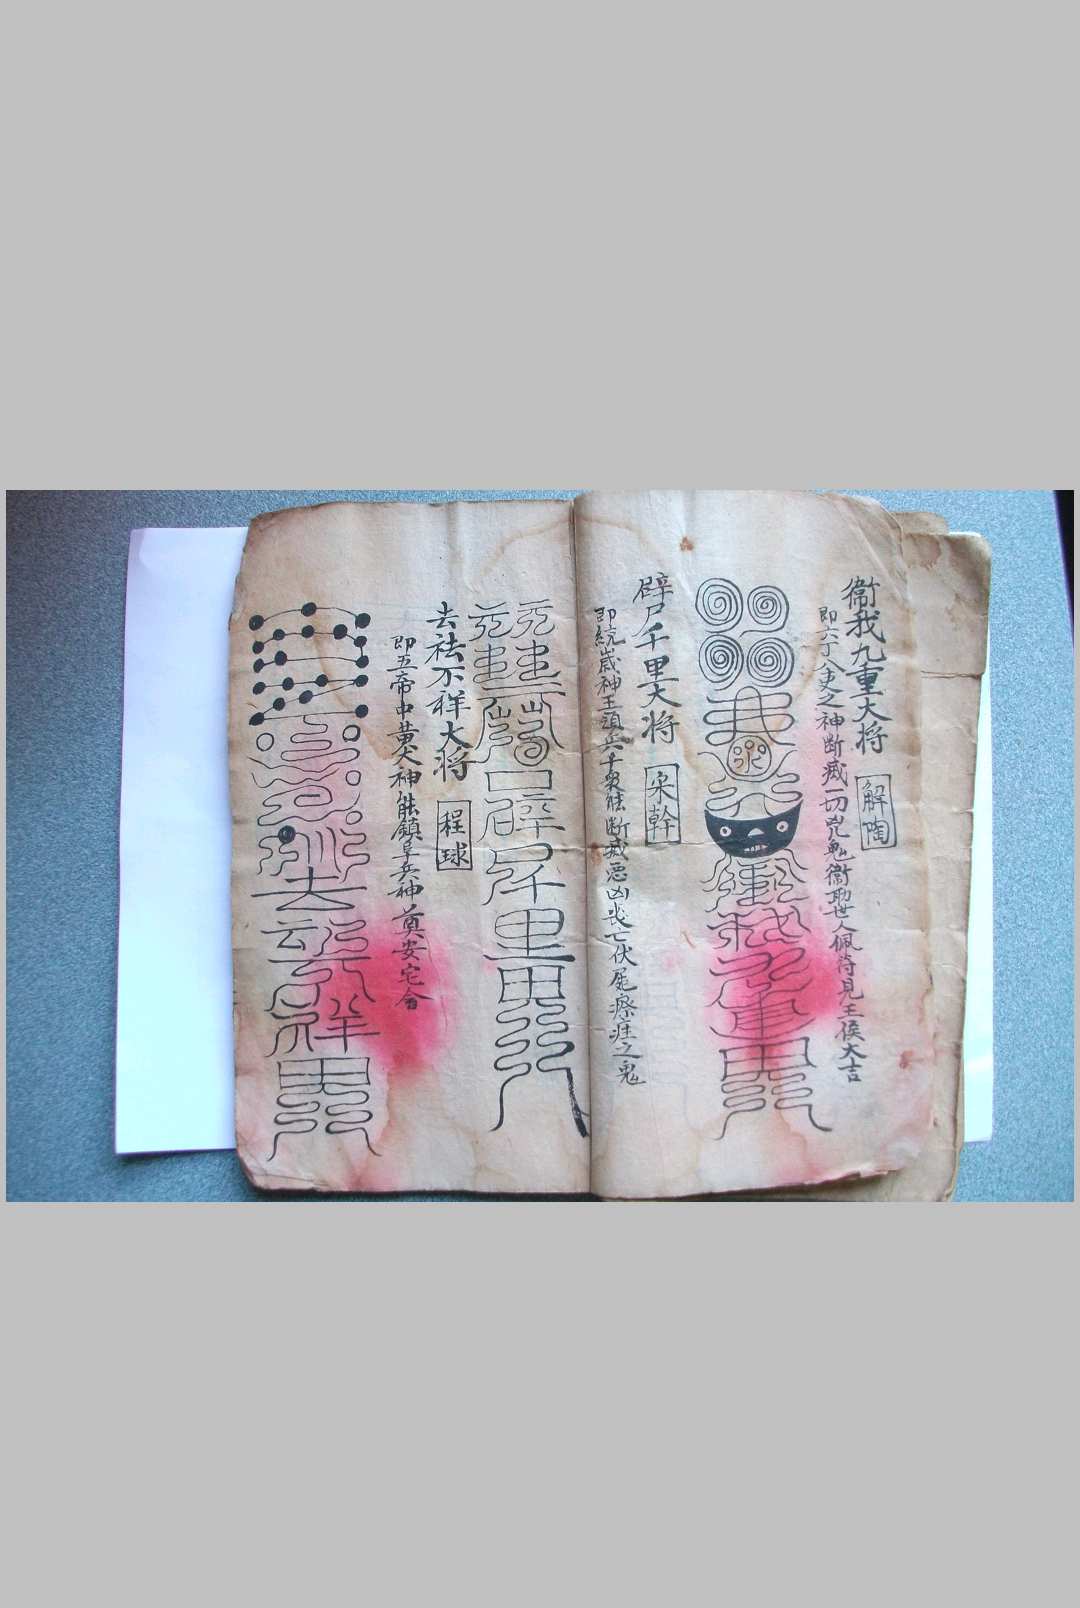 衞我九重大将 解陶
即六丁八史之神断㓕一切兇鬼衞助世人佩符見王侯大吉
辟尸千里大将 宋幹
即統歲神王頭兵千衆能断㓕悪凶丧亡伏屍瘵疰之鬼
去祛不祥大将 程球
即五帝中黄大神能鎮阜兵神奠安宅舍